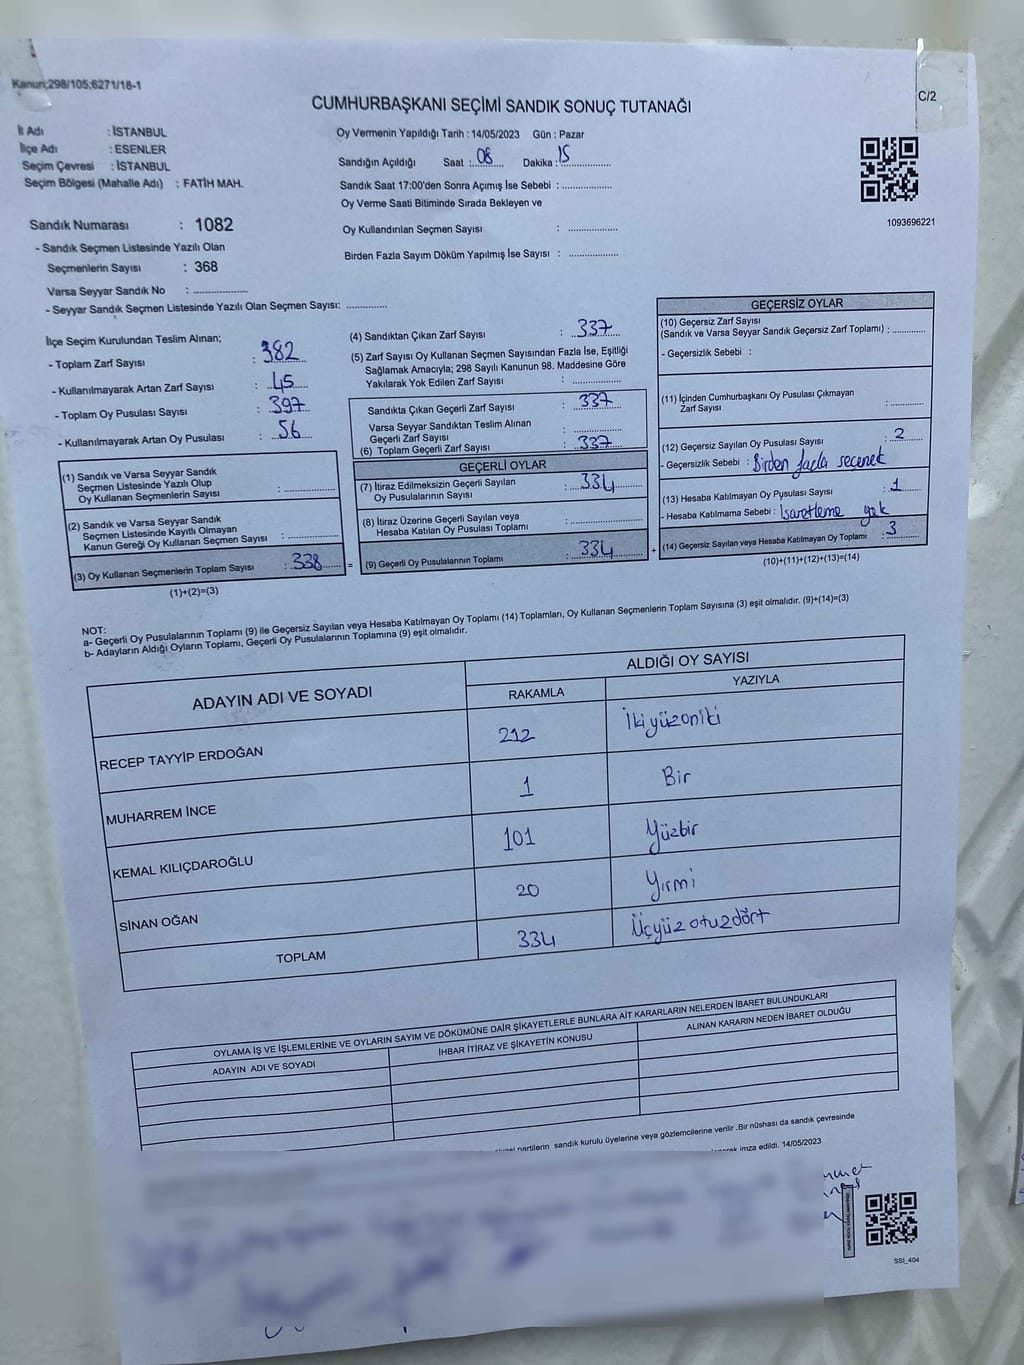 Kanun;298/105;6271/18-1
C/2
CUMHURBAŞKANI SEÇİMİ SANDIK SONUÇ TUTANAĞI
İl Adı : İSTANBUL
İlçe Adı : ESENLER
Seçim Çevresi : İSTANBUL
Seçim Bölgesi (Mahalle Adı) : FATİH MAH.
Oy Vermenin Yapıldığı Tarih : 14/05/2023 Gün : Pazar
Sandığın Açıldığı Saat : 08 Dakika : 15
Sandık Saat 17:00'den Sonra Açımış İse Sebebi : ..............
Oy Verme Saati Bitiminde Sırada Bekleyen ve
Oy Kullandırılan Seçmen Sayısı : ..............
Birden Fazla Sayım Döküm Yapılmış İse Sayısı : ..............
1093696221
Sandık Numarası : 1082
- Sandık Seçmen Listesinde Yazılı Olan
Seçmenlerin Sayısı : 368
Varsa Seyyar Sandık No : ..............
- Seyyar Sandık Seçmen Listesinde Yazılı Olan Seçmen Sayısı: ..............
İlçe Seçim Kurulundan Teslim Alınan;
- Toplam Zarf Sayısı : 382
- Kullanılmayarak Artan Zarf Sayısı : 45
- Toplam Oy Pusulası Sayısı : 397
- Kullanılmayarak Artan Oy Pusulası : 56
(1) Sandık ve Varsa Seyyar Sandık
Seçmen Listesinde Yazılı Olup
Oy Kullanan Seçmenlerin Sayısı : ..............
(2) Sandık ve Varsa Seyyar Sandık
Seçmen Listesinde Kayıtlı Olmayan
Kanun Gereği Oy Kullanan Seçmen Sayısı : ..............
(3) Oy Kullanan Seçmenlerin Toplam Sayısı : 338
(1)+(2)=(3)
(4) Sandıktan Çıkan Zarf Sayısı : 337
(5) Zarf Sayısı Oy Kullanan Seçmen Sayısından Fazla İse, Eşitliği
Sağlamak Amacıyla; 298 Sayılı Kanunun 98. Maddesine Göre
Yakılarak Yok Edilen Zarf Sayısı : ..............
Sandıkta Çıkan Geçerli Zarf Sayısı : 337
Varsa Seyyar Sandıktan Teslim Alınan
Geçerli Zarf Sayısı : ..............
(6) Toplam Geçerli Zarf Sayısı : 337
GEÇERLİ OYLAR
(7) İtiraz Edilmeksizin Geçerli Sayılan
Oy Pusulalarının Sayısı : 334
(8) İtiraz Üzerine Geçerli Sayılan veya
Hesaba Katılan Oy Pusulası Toplamı : ..............
= (9) Geçerli Oy Pusulalarının Toplamı : 334 +
GEÇERSİZ OYLAR
(10) Geçersiz Zarf Sayısı
(Sandık ve Varsa Seyyar Sandık Geçersiz Zarf Toplamı) : ..............
- Geçersizlik Sebebi :
(11) İçinden Cumhurbaşkanı Oy Pusulası Çıkmayan
Zarf Sayısı : ..............
(12) Geçersiz Sayılan Oy Pusulası Sayısı : 2
- Geçersizlik Sebebi : Birden fazla seçenek
(13) Hesaba Katılmayan Oy Pusulası Sayısı : 1
- Hesaba Katılmama Sebebi : İşaretleme yok
(14) Geçersiz Sayılan veya Hesaba Katılmayan Oy Toplamı : 3
(10)+(11)+(12)+(13)=(14)
NOT:
a- Geçerli Oy Pusulalarının Toplamı (9) ile Geçersiz Sayılan veya Hesaba Katılmayan Oy Toplamı (14) Toplamları, Oy Kullanan Seçmenlerin Toplam Sayısına (3) eşit olmalıdır. (9)+(14)=(3)
b- Adayların Aldığı Oyların Toplamı, Geçerli Oy Pusulalarının Toplamına (9) eşit olmalıdır.
ADAYIN ADI VE SOYADI ALDIĞI OY SAYISI
RAKAMLA YAZIYLA
RECEP TAYYİP ERDOĞAN 212 İkiyüzoniki
MUHARREM İNCE 1 Bir
KEMAL KILIÇDAROĞLU 101 Yüzbir
SİNAN OĞAN 20 Yirmi
TOPLAM 334 Üçyüz otuzdört
OYLAMA İŞ VE İŞLEMLERİNE VE OYLARIN SAYIM VE DÖKÜMÜNE DAİR ŞİKAYETLERLE BUNLARA AİT KARARLARIN NELERDEN İBARET BULUNDUKLARI
ADAYIN ADI VE SOYADI İHBAR İTİRAZ VE ŞİKAYETİN KONUSU ALINAN KARARIN NEDEN İBARET OLDUĞU
partilerin sandık kurulu üyelerine veya gözlemcilerine verilir .Bir nüshası da sandık çevresinde
imza edildi. 14/05/2023
SSI_404